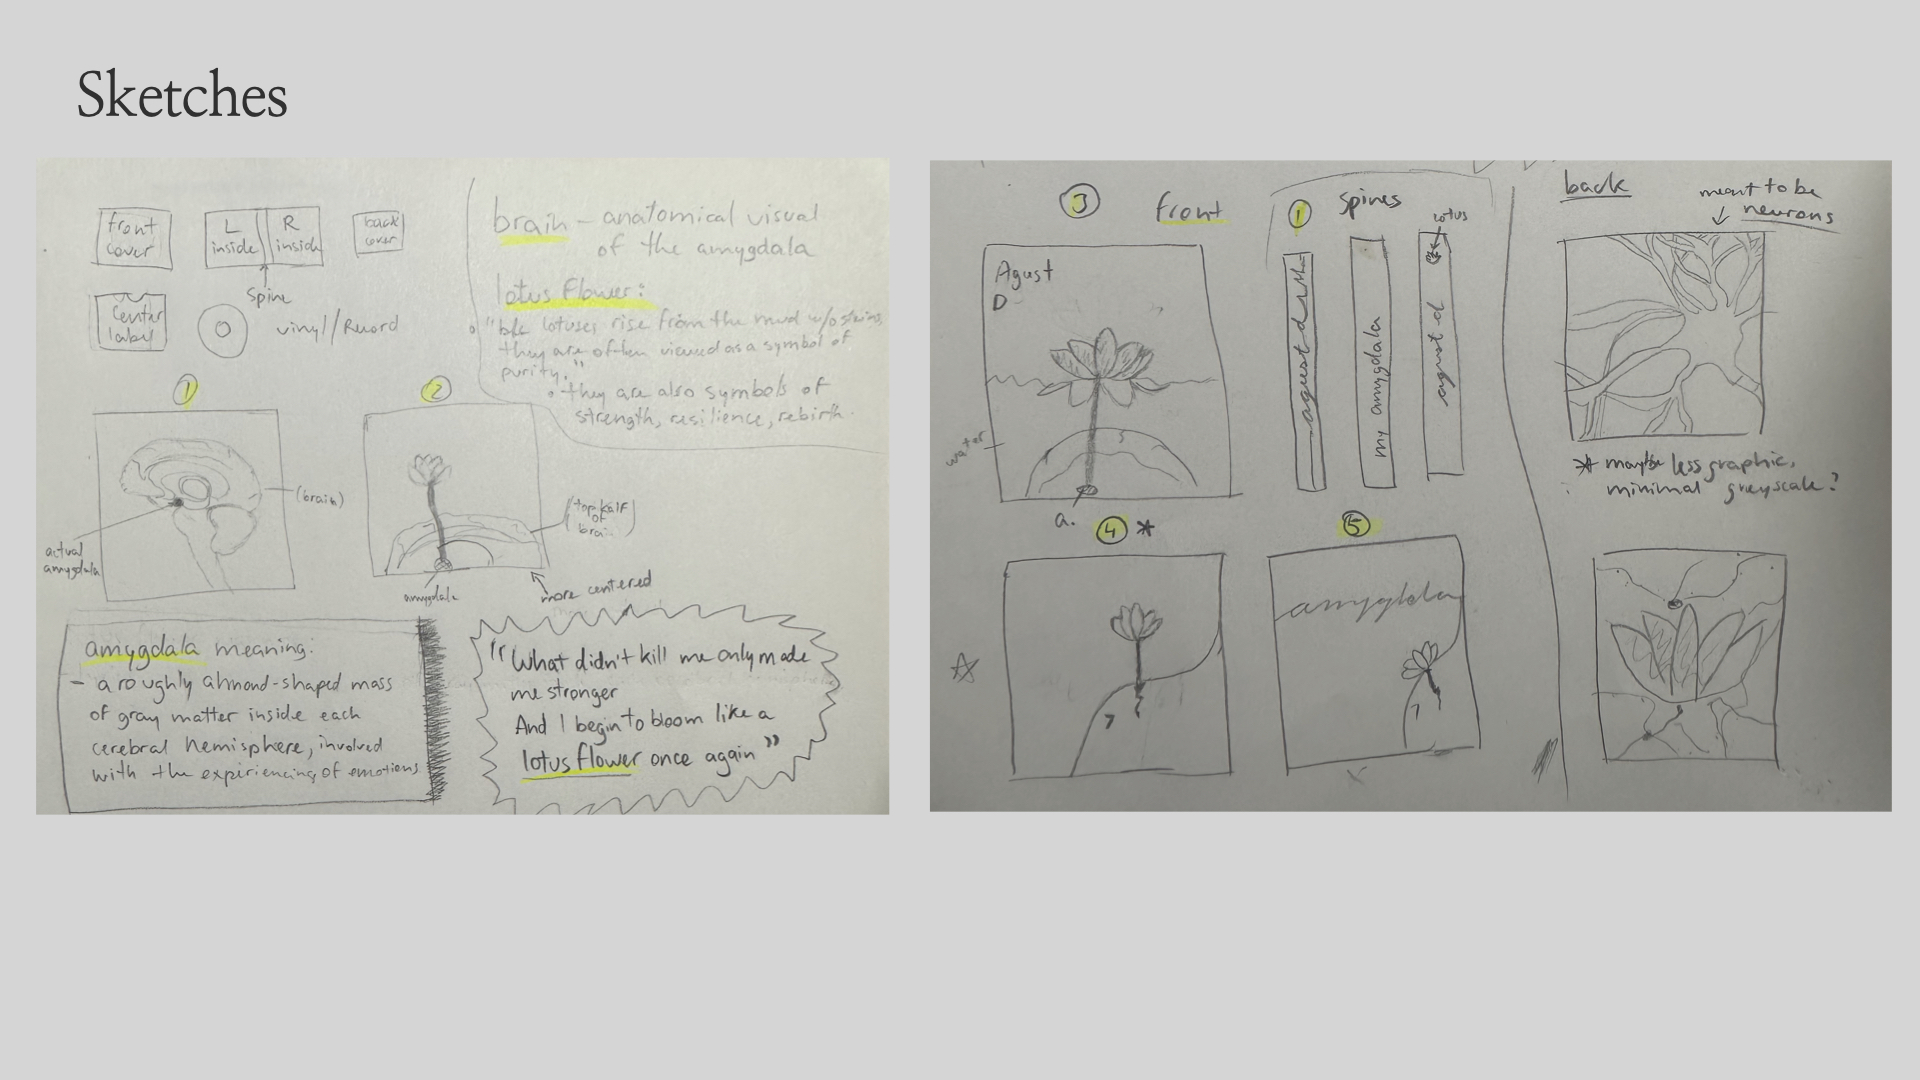 Sketches
front
cover
L
inside
R
inside
back
cover
Spine
Center
label
vinyl/Record
brain - anatomical visual
of the amygdala
lotus flower:
"b/c lotuses rise from the mud w/o stains,
they are often viewed as a symbol of
purity."
• they are also symbols of
strength, resilience, rebirth.
1
2
(brain)
actual
amygdala
(top half
of
brain)
amygdala
more centered
amygdala meaning:
- a roughly almond-shaped mass
of gray matter inside each
cerebral hemisphere, involved
with the experiencing of emotions
"What didn't kill me only made
me stronger
And I begin to bloom like a
lotus flower once again"
3
front
Agust
D
water
a.
1
Spines
lotus
agust d
my amygdala
agust d
4 *
5
amygdala
back
meant to be
neurons
* maybe less graphic,
minimal greyscale?